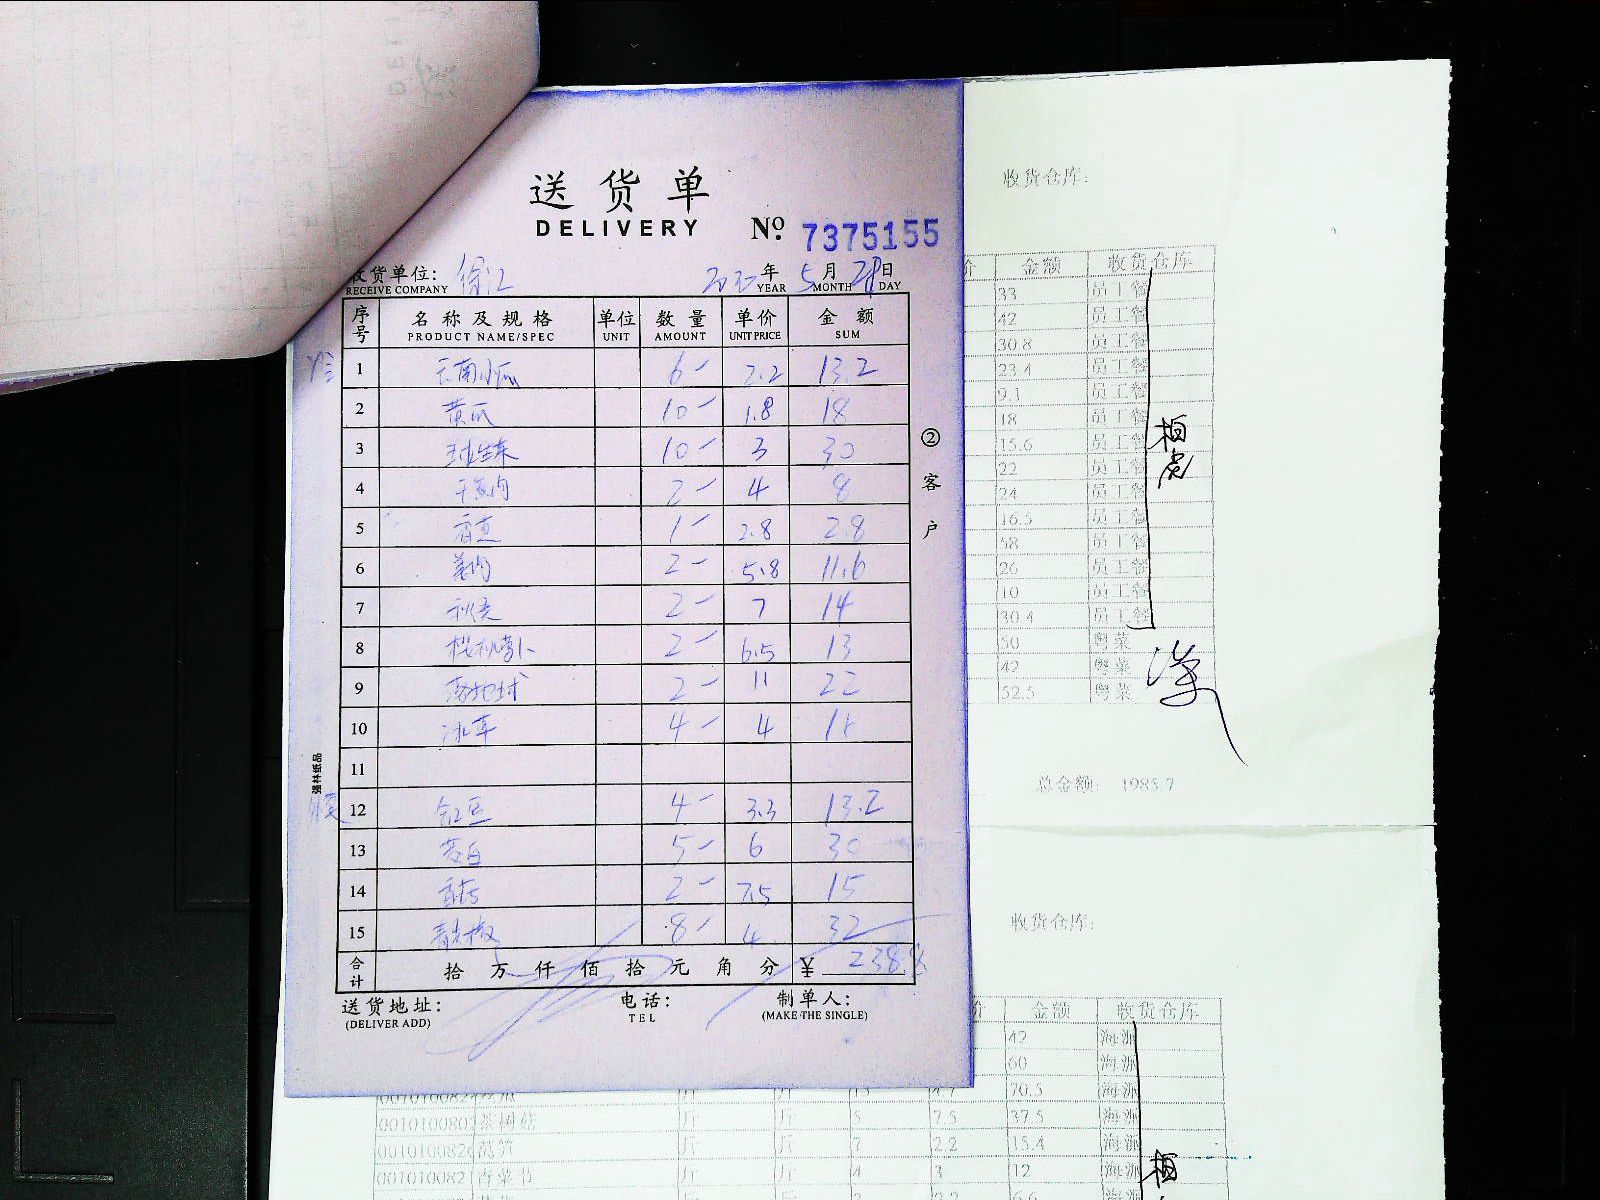 送货单
DELIVERY
№ 7375155
收货单位: 徐汇 年 5月28日
RECEIVE COMPANY YEAR MONTH DAY
序号 名称及规格 单位 数量 单价 金额
PRODUCT NAME/SPEC UNIT AMOUNT UNIT PRICE SUM
1 云南小瓜 6 2.2 13.2
2 黄瓜 10 1.8 18
3 球生菜 10 3 30
4 2 4 8
5 香菜 1 2.8 2.8
6 姜肉 2 5.8 11.6
7 秋葵 2 7 14
8 樱桃萝卜 2 6.5 13
9 2 11 22
10 冰草 4 4
11
12 豇豆 4 3.3 13.2
13 茭白 5 6 30
14 2 7.5 15
15 青尖椒 8 4 32
合计 拾万仟佰拾元角分 ¥ 238.8
送货地址: 电话: 制单人:
(DELIVER ADD) TEL (MAKE THE SINGLE)
② 客户
强林纸品
收货仓库:
价 金额 收货仓库
33 员工餐
42 员工餐
30.8 员工餐
23.4 员工餐
9.1 员工餐
18 员工餐
15.6 员工餐
22 员工餐
24 员工餐
16.5 员工餐
58 员工餐
26 员工餐
10 员工餐
30.4 员工餐
50 粤菜
42 粤菜
52.5 粤菜
总金额: 1985.7
收货仓库:
价 金额 收货仓库
42 海派
60 海派
70.5 海派
0010100802 茶树菇 斤 斤 5 7.5 37.5 海派
001010082 莴笋 斤 斤 7 2.2 15.4 海派
001010082 香菜节 斤 斤 4 3 12 海派